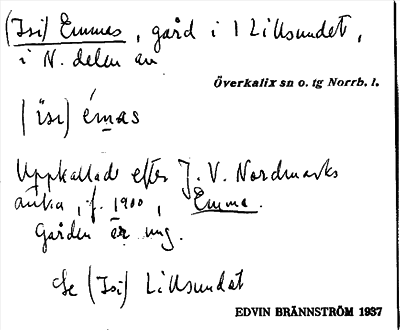 (Isi) Emmes, gård i 1 Lillsundet,
i N. delen av
Överkalix sn o. tg Norrb. l.
(isi) émas
Uppkallad efter J. V. Nordmarks
änka, f. 1900, Emma.
Gården är ung.
Se (Isi) Lillsundet
EDVIN BRÄNNSTRÖM 1937